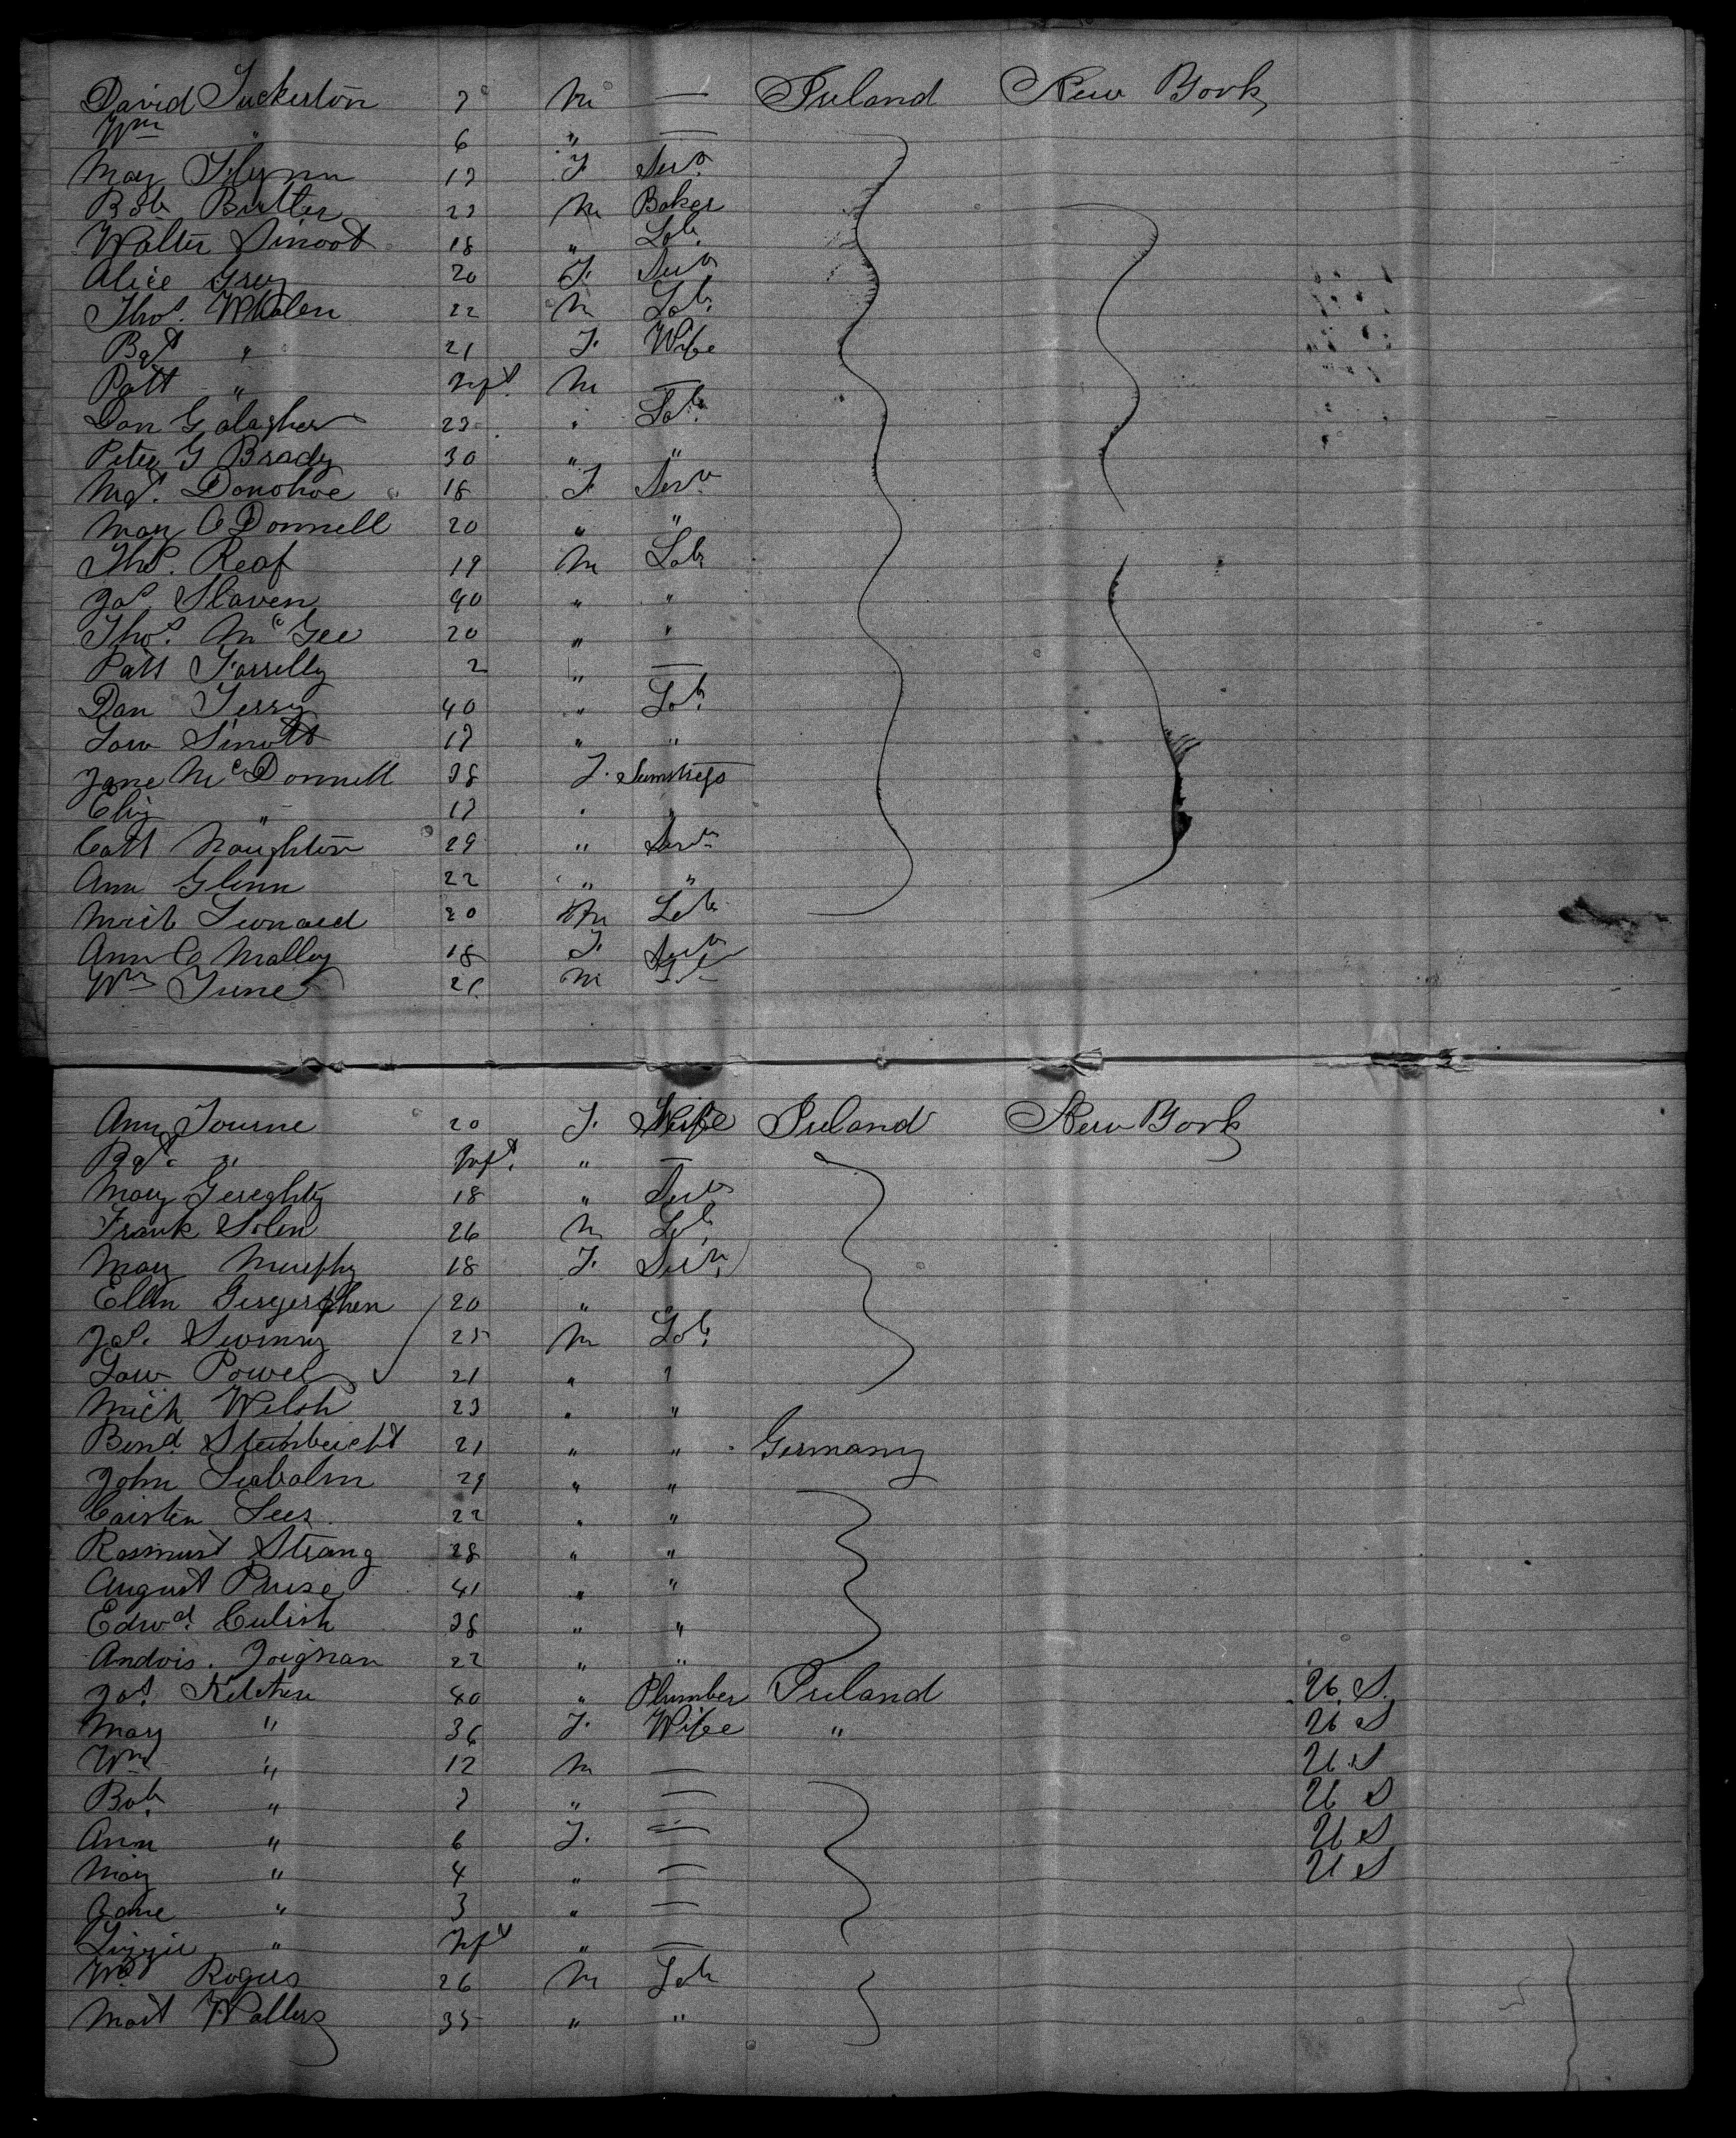 David Tuckerton 7 M — Ireland New York
Wm " 6 " —
Mary Flynn 17 F Serv.
Bob Butler 23 M Baker
Walter Sinoot 18 " Lab.
Alice Grey 20 F. Serv
Thos. Whalen 22 M Lab.
Bgt " 21 F. Wife
Patt " Inft. M —
Dan Galagher 23 " Lab.
Peter G Brady 30 " "
Mgt. Donohoe 18 F Serv.
Mary O Donnell 20 " "
Thos. Reaf 19 M Lab
Jas. Slaven 40 " "
Thos. McGee 20 " "
Patt Farrelly 2 " —
Dan Terry 40 " Lab.
Law Sinott 17 " "
Jane McDonnell 38 F. Seamstress
Eliz " 17 " "
Catt Naughton 29 " Serv.
Ann Glinn 22 " "
Mich Leonard 20 M Lab
Ann O Malley 18 F. Serv
Wm Tune 21 M Lab
Ann Tourne 20 F. Wife Ireland New York
Bgt. " Inft. " —
Mary Gereghty 18 " Serv
Frank Solen 26 M Lab.
Mary Murphy 18 F. Serv.
Ellen 20 "
Jas. Swinny 25 M Lab.
Law Powel 21 " "
Mich Welsh 23 " "
Bernd Steinbeicht 21 " " Germany
John Seebalm 29 " "
Carsten Sees 22 " "
Rasmust Strang 28 " "
August Pruse 41 " "
Edwd. Culish 38 " "
Andois. 22 " "
Jas. Kelcher 40 " Plumber Ireland U. S.
Mary " 36 F. Wife " U S
Wm " 12 M — U S
Bob. " 7 " — U S
Ann " 6 F. — U S
Mary " 4 " — U S
Jane " 3 " —
Lizzie " Inft " —
Wm Rogers 26 M Lab
Mart Wallers 35 " "